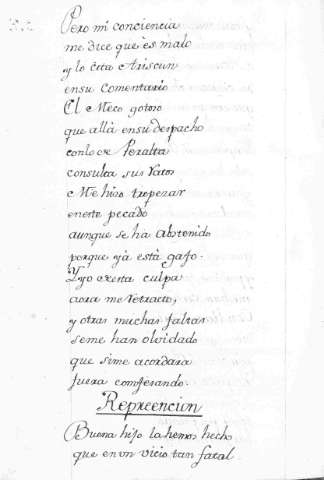 Pero mi conciencia
me dice que es malo
y lo cita Ariscun
ensu comentario
El Meco gotoso
que allá ensu despacho
conlo de Peralta
consulta sus ratos
Me hiso tropezar
eneste pecado
aunque se ha abstenido
porque ya está gafo.
Yyo de esta culpa
aora me retracto,
y otras muchas faltas
seme han olvidado
que sime acordara
fuera confesando.
Repreencion
Buena hijo la hemos hecho
que enun vicio tan fatal